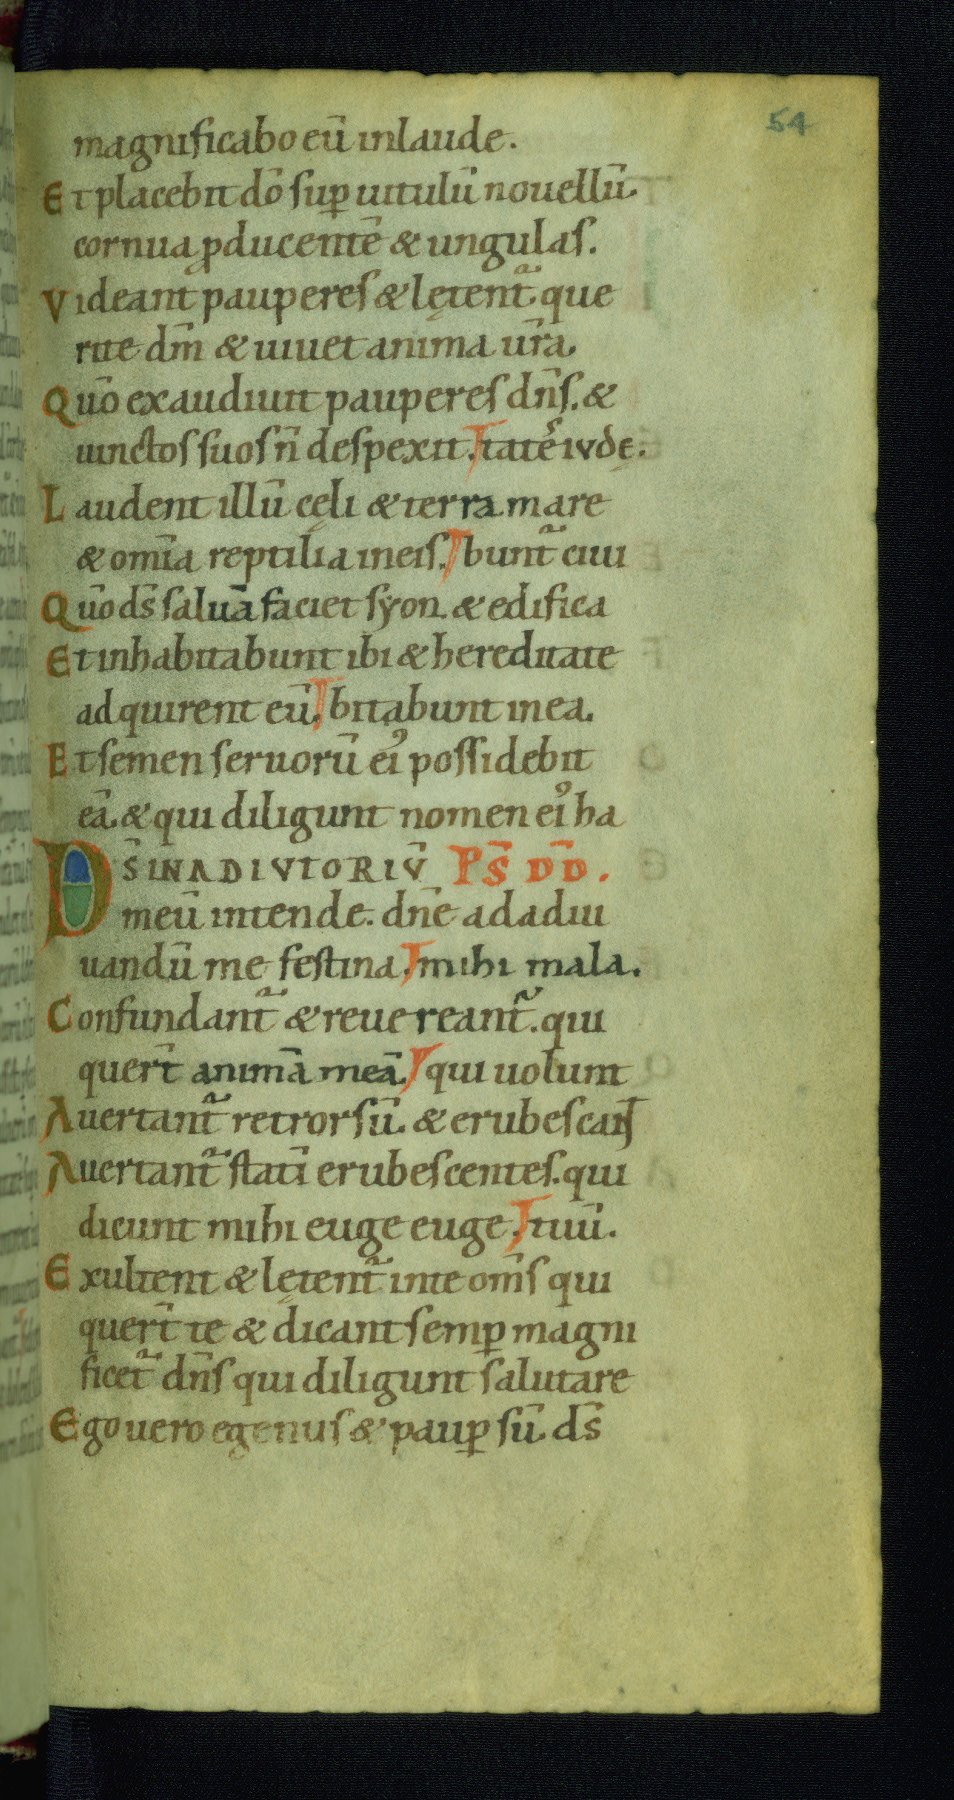 54
magnificabo eū inlaude.
Et placebit dō suꝑ uitulū nouellū.
cornua ꝓducentē & ungulas.
Videant pauperes & lętent᷑ que
rite dm̄ & uiuet anima ur̄a.
Quō exaudiuit pauperes dn̄s. &
uinctos suos n̄ despexit. tatēs iudę.
Laudent illū cęli & terra mare
& om̄ia reptilia ineis. bunt᷑ ciui
Quō ds̄ saluā faciet syon. & edifica
Et inhabitabunt ibi & hereditate
adquirent eū. bitabunt inea.
Et semen seruorū eiꝰ possidebit
eā. & qui diligunt nomen eiꝰ ha
DS̄ INADIVTORIV̄ PS̄ DD̄.
meū intende. dn̄e adadiu
uandū me festina. mihi mala.
Confundant᷑ & reuereant᷑. qui
quer̄t animā meā. qui uolunt
Auertant᷑ retrorsū. & erubescant
Auertant᷑ statī erubescentes. qui
dicunt mihi euge euge. tuū.
Exultent & lętent᷑ inte om̄s qui
quer̄t te & dicant semꝑ magni
ficet᷑ dn̄s qui diligunt salutare
Ego uero egenus & pauꝑ sū. ds̄